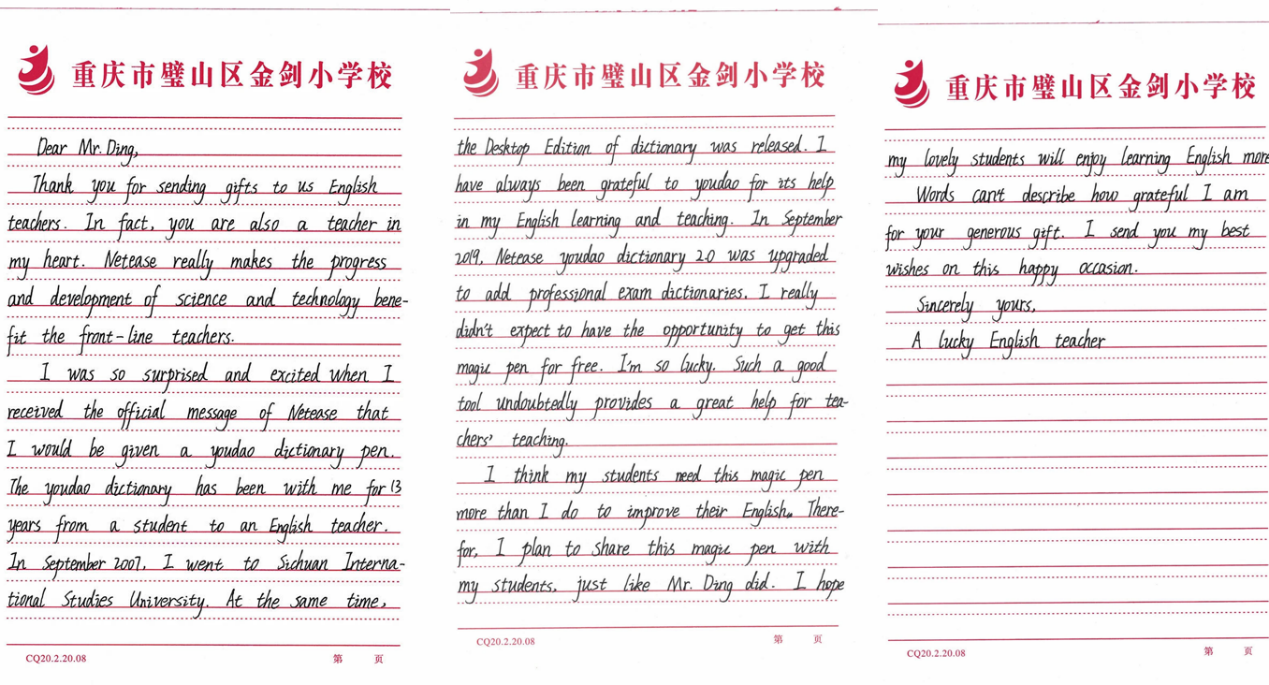 重庆市璧山区金剑小学校
Dear Mr. Ding,
Thank you for sending gifts to us English
teachers. In fact, you are also a teacher in
my heart. Netease really makes the progress
and development of science and technology bene-
fit the front-line teachers.
I was so surprised and excited when I
received the official message of Netease that
I would be given a youdao dictionary pen.
The youdao dictionary has been with me for 13
years from a student to an English teacher.
In September 2007, I went to Sichuan Interna-
tional Studies University. At the same time,
CQ20.2.20.08 第 页
重庆市璧山区金剑小学校
the Desktop Edition of dictionary was released. I
have always been grateful to youdao for its help
in my English learning and teaching. In September
2019, Netease youdao dictionary 2.0 was upgraded
to add professional exam dictionaries. I really
didn't expect to have the opportunity to get this
magic pen for free. I'm so lucky. Such a good
tool undoubtedly provides a great help for tea-
chers' teaching.
I think my students need this magic pen
more than I do to improve their English. There-
for, I plan to share this magic pen with
my students, just like Mr. Ding did. I hope
CQ20.2.20.08 第 页
重庆市璧山区金剑小学校
my lovely students will enjoy learning English more
Words can't describe how grateful I am
for your generous gift. I send you my best
wishes on this happy occasion.
Sincerely yours,
A lucky English teacher
CQ20.2.20.08 第 页